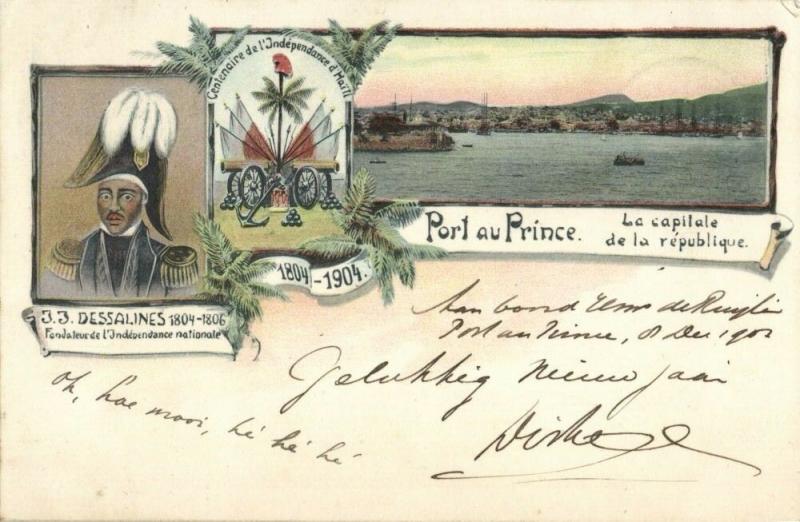 Centenaire de l'Indépendance d'Haïti
1804-1904.
J.J. DESSALINES 1804-1806
Fondateur de l'Indépendance nationale
Port au Prince.
La capitale
de la république.
Aan boord de Ruyter
Port au Prince, 8 Dec 190
Gelukkig Nieuw jaar
Oh, hoe mooi, hé hé hé